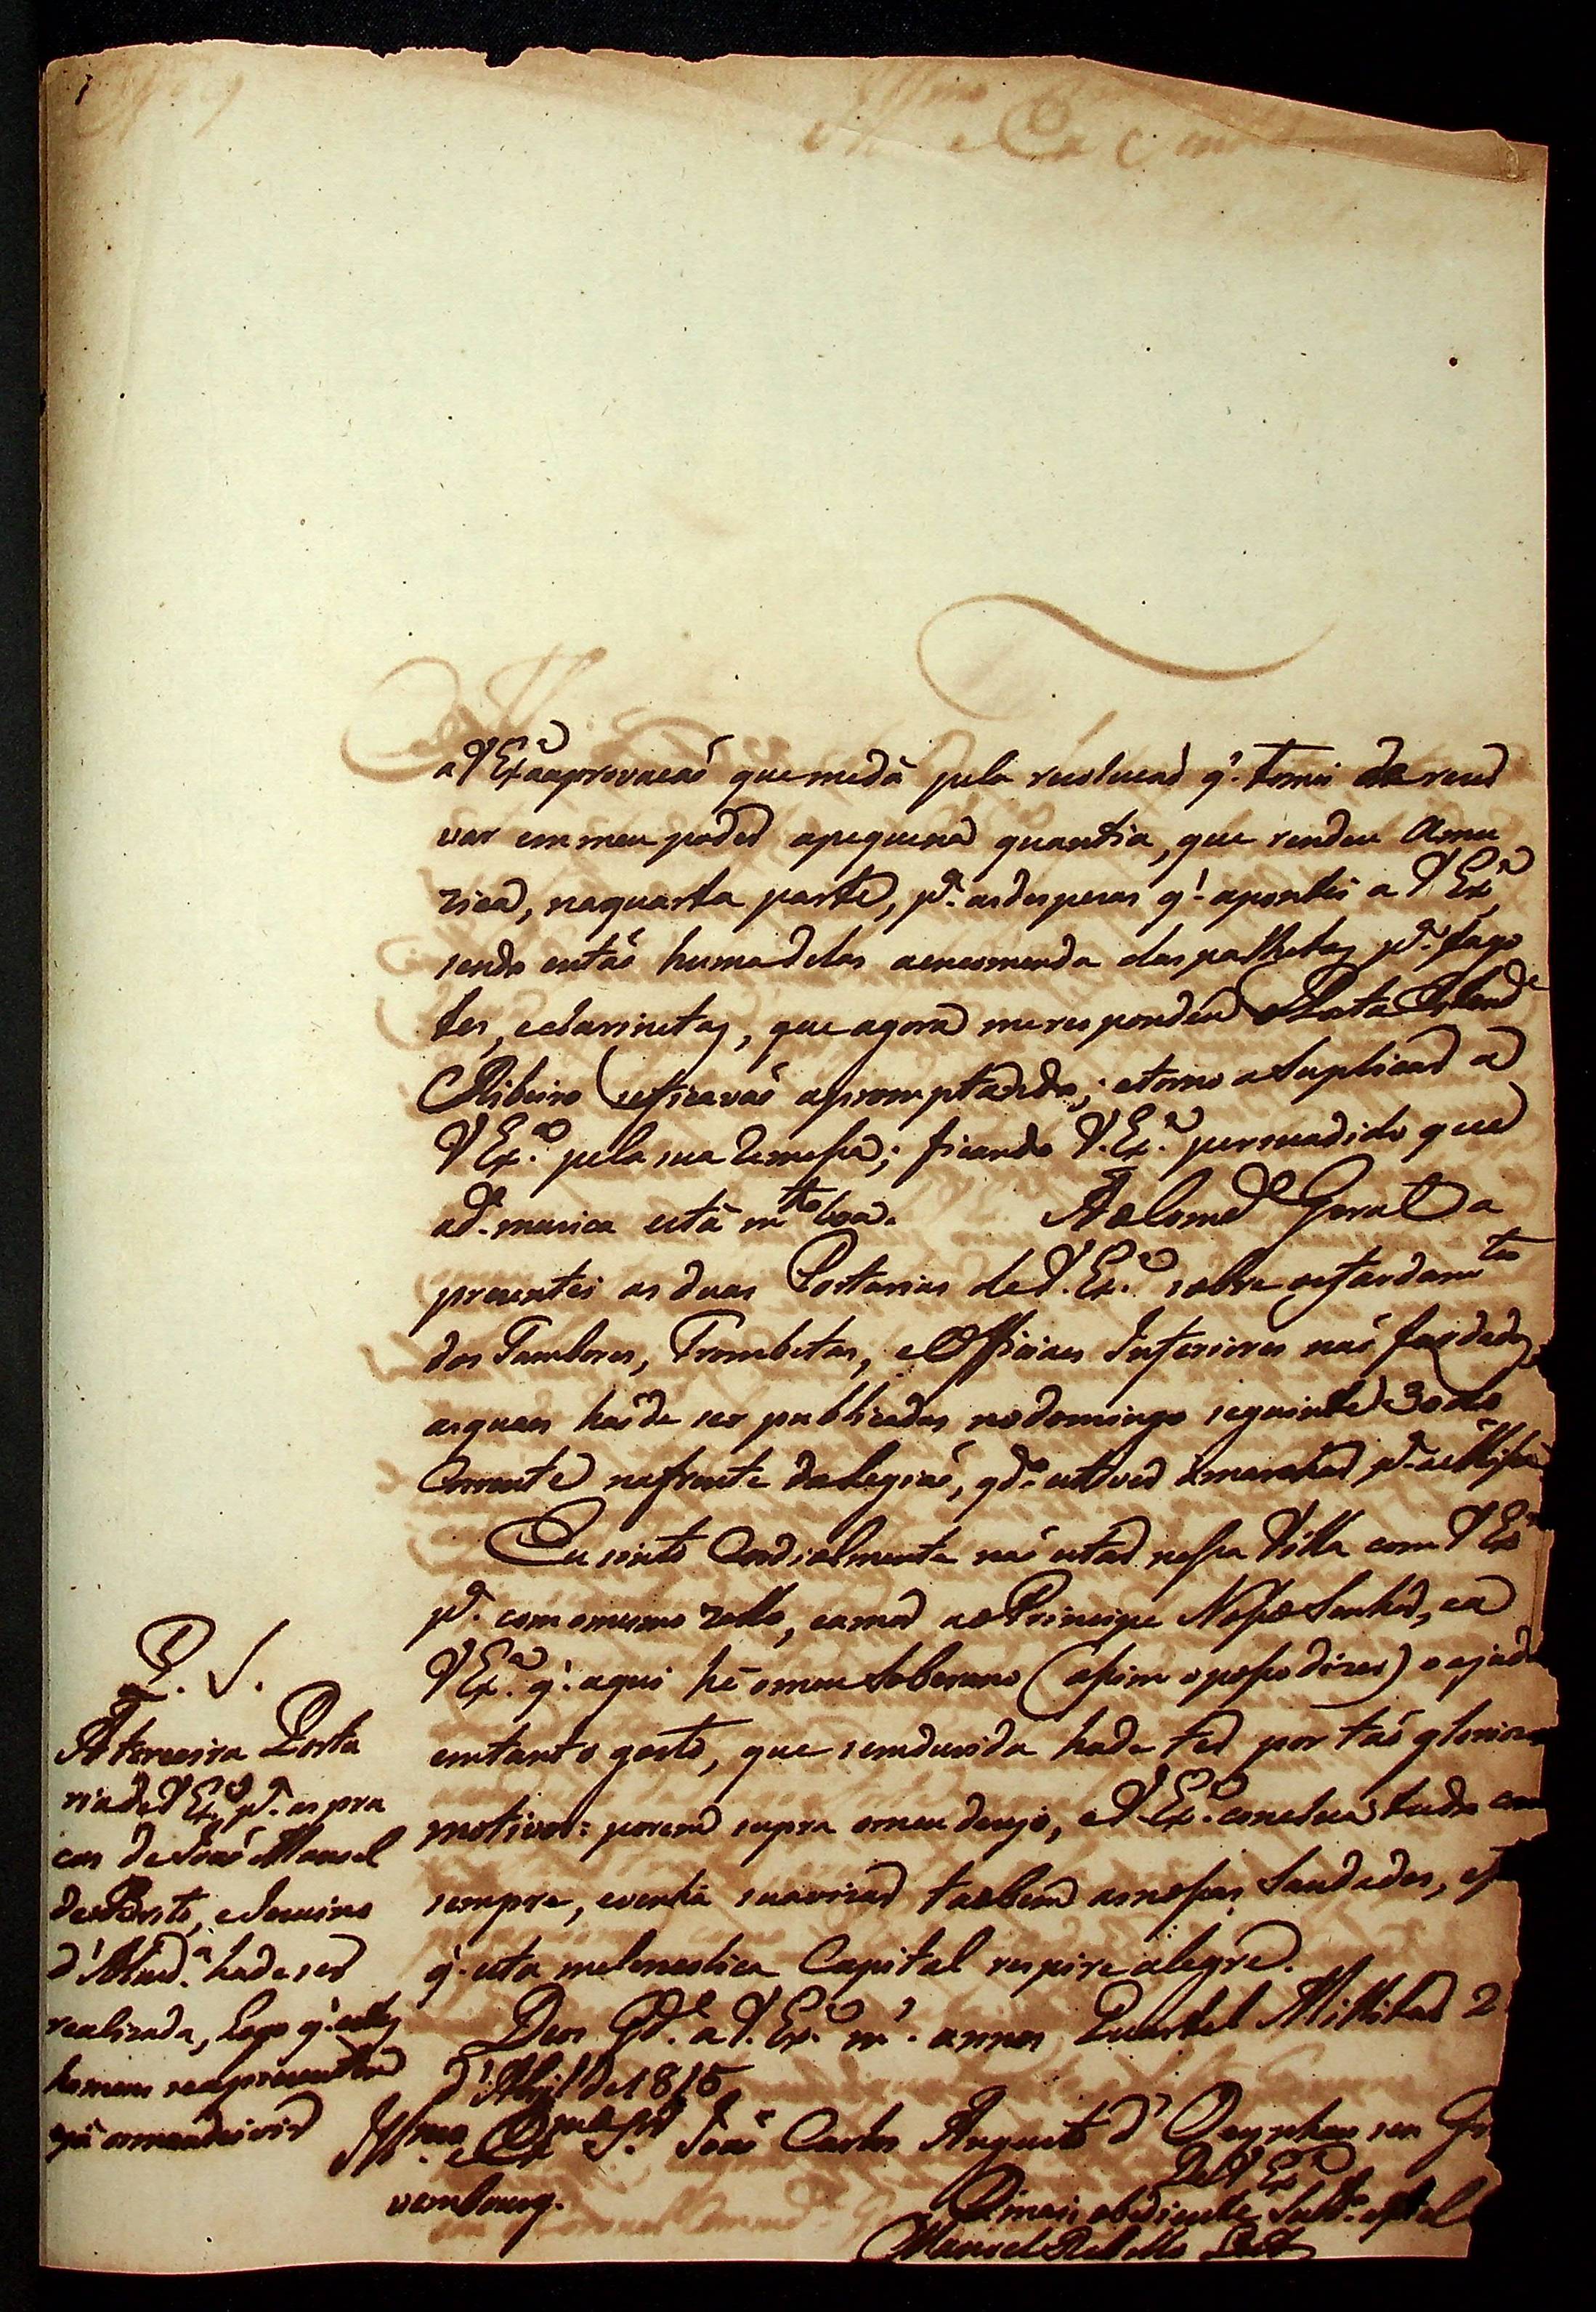 a V Exª aaprovacaõ que medá pela resolucaõ q' tomei de rezer
var em meu poder apequena quantia, que rendeu Amu
zica, naquarta parte, pª. as despezas q' apontei a V Exª,
sendo entaõ huma delas aencomenda das palhetas pª. fago
tes, eclarinetas, que agora me responde
Ribeiro seficavaõ apromptando; etorno aSuplicar a
V Exª. pela sua Remessa; ficando V. Exª. persuadido que
ad. musica está mto boa. Ao Comde Geral a
prezentei as duas Portarias de V. Exª. sobre ofardamto
dos Tambores, Trombetas, eOfficiaes Inferiores naõ fardados,
asquaes haõde ser publicadas nodomingo seguinte 30 do
Corrente nafrente daLegiaõ, qdo. estiver amarchar pª. aMissa
Eu sinto Cordialmente naõ estar nessa Villa com V Exª
pª. com omesmo zello, eamor aoPrincipe Nosso Senhor, ea
V Exª. q'. aqui hé omeu Soberano (assim oposso dizer) oajudar
emtanto gosto, que semduvida hade ter por taõ gloriozos
motivos: porem supra omeu dezejo, eV. Exª. conclua tudo como
sempre, evenha suavizar taobem asnossas Saudades,
q'. esta melencolica Capital respire alegre.
Deos Gde. a V. Exª. ms. annos Quartel Millitar 2
d'Abril de 1815
Illmo. e Exmo. Snr. Joaõ Carlos Augusto d'Oeynhausen Gre
vembourg.
De V Exª
Omais obediente Subdo.
Manoel Rebello
P. S.
A terceira Porta
ria de V Exª, pª. as pra
cas de Joaõ Manoel
d'Almdª. hade ser
realizada, Logo q' estes
homens seaprezentem